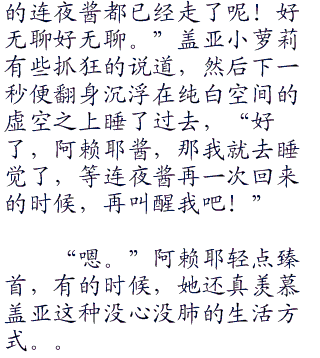 的连夜酱都已经走了呢！好
无聊好无聊。”盖亚小萝莉
有些抓狂的说道，然后下一
秒便翻身沉浮在纯白空间的
虚空之上睡了过去，“好
了，阿赖耶酱，那我就去睡
觉了，等连夜酱再一次回来
的时候，再叫醒我吧！”
“嗯。”阿赖耶轻点臻
首，有的时候，她还真羡慕
盖亚这种没心没肺的生活方
式。。